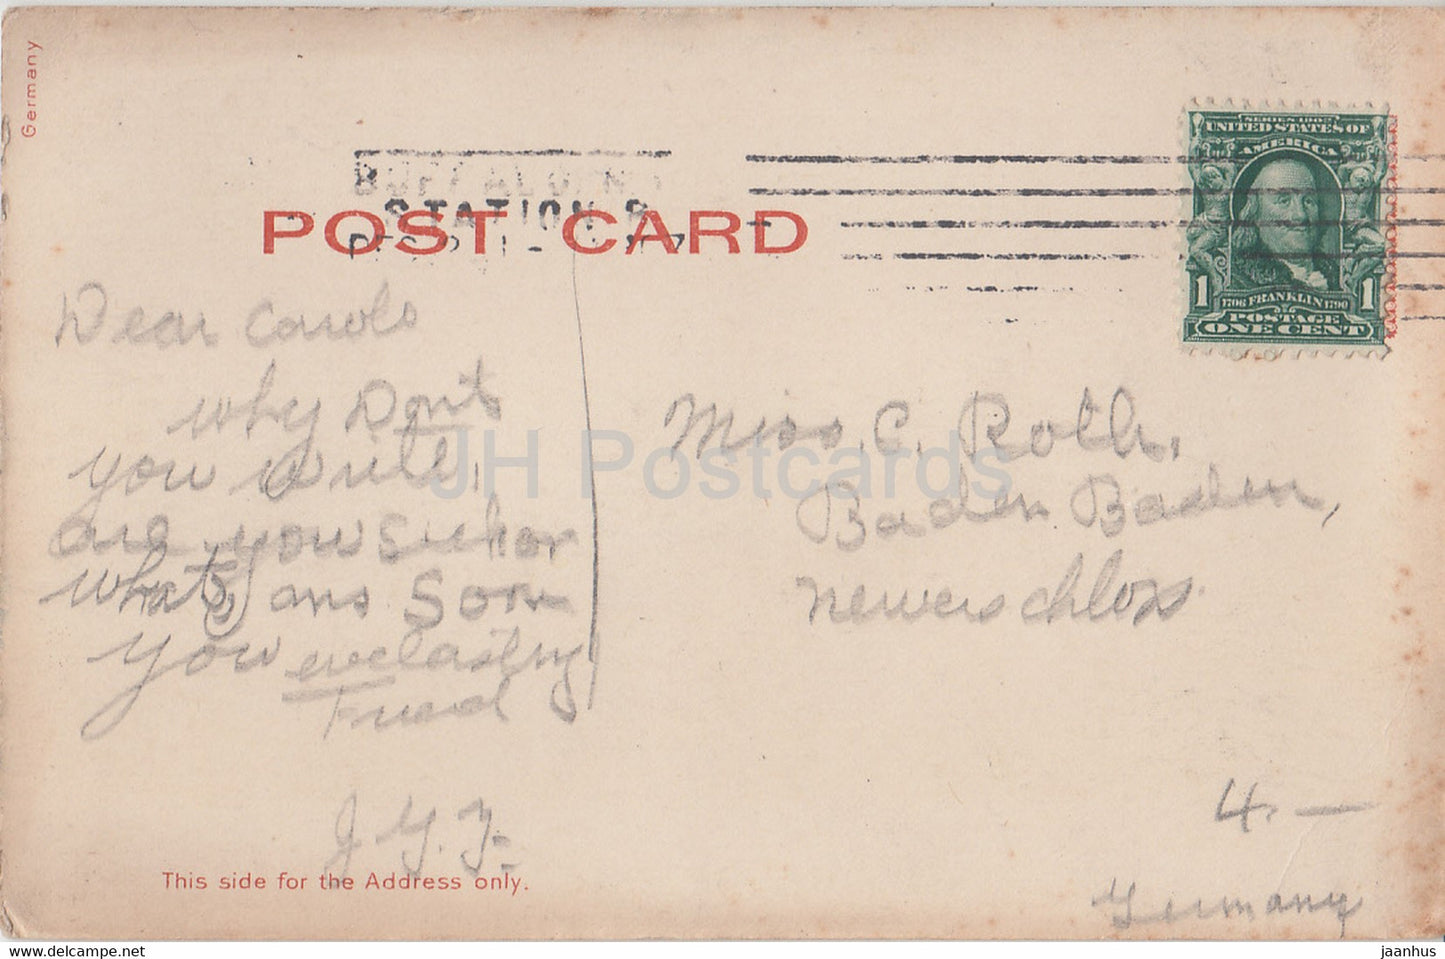 Germany
BUFFALO, N.Y.
STATION B
POST CARD
SERIES 1902
UNITED STATES OF
AMERICA
1 1706 FRANKLIN 1790 1
POSTAGE
ONE CENT
Dear Carols
why Dont
you write,
are you Sick or
whats, ans Soon
you everlasting
Friend
J. Y. Y.
Miss. C. Roth.
Baden Baden,
newerschloss
4. —
Germany
This side for the Address only.
JH Postcards
jaanhus @ delcampe.net